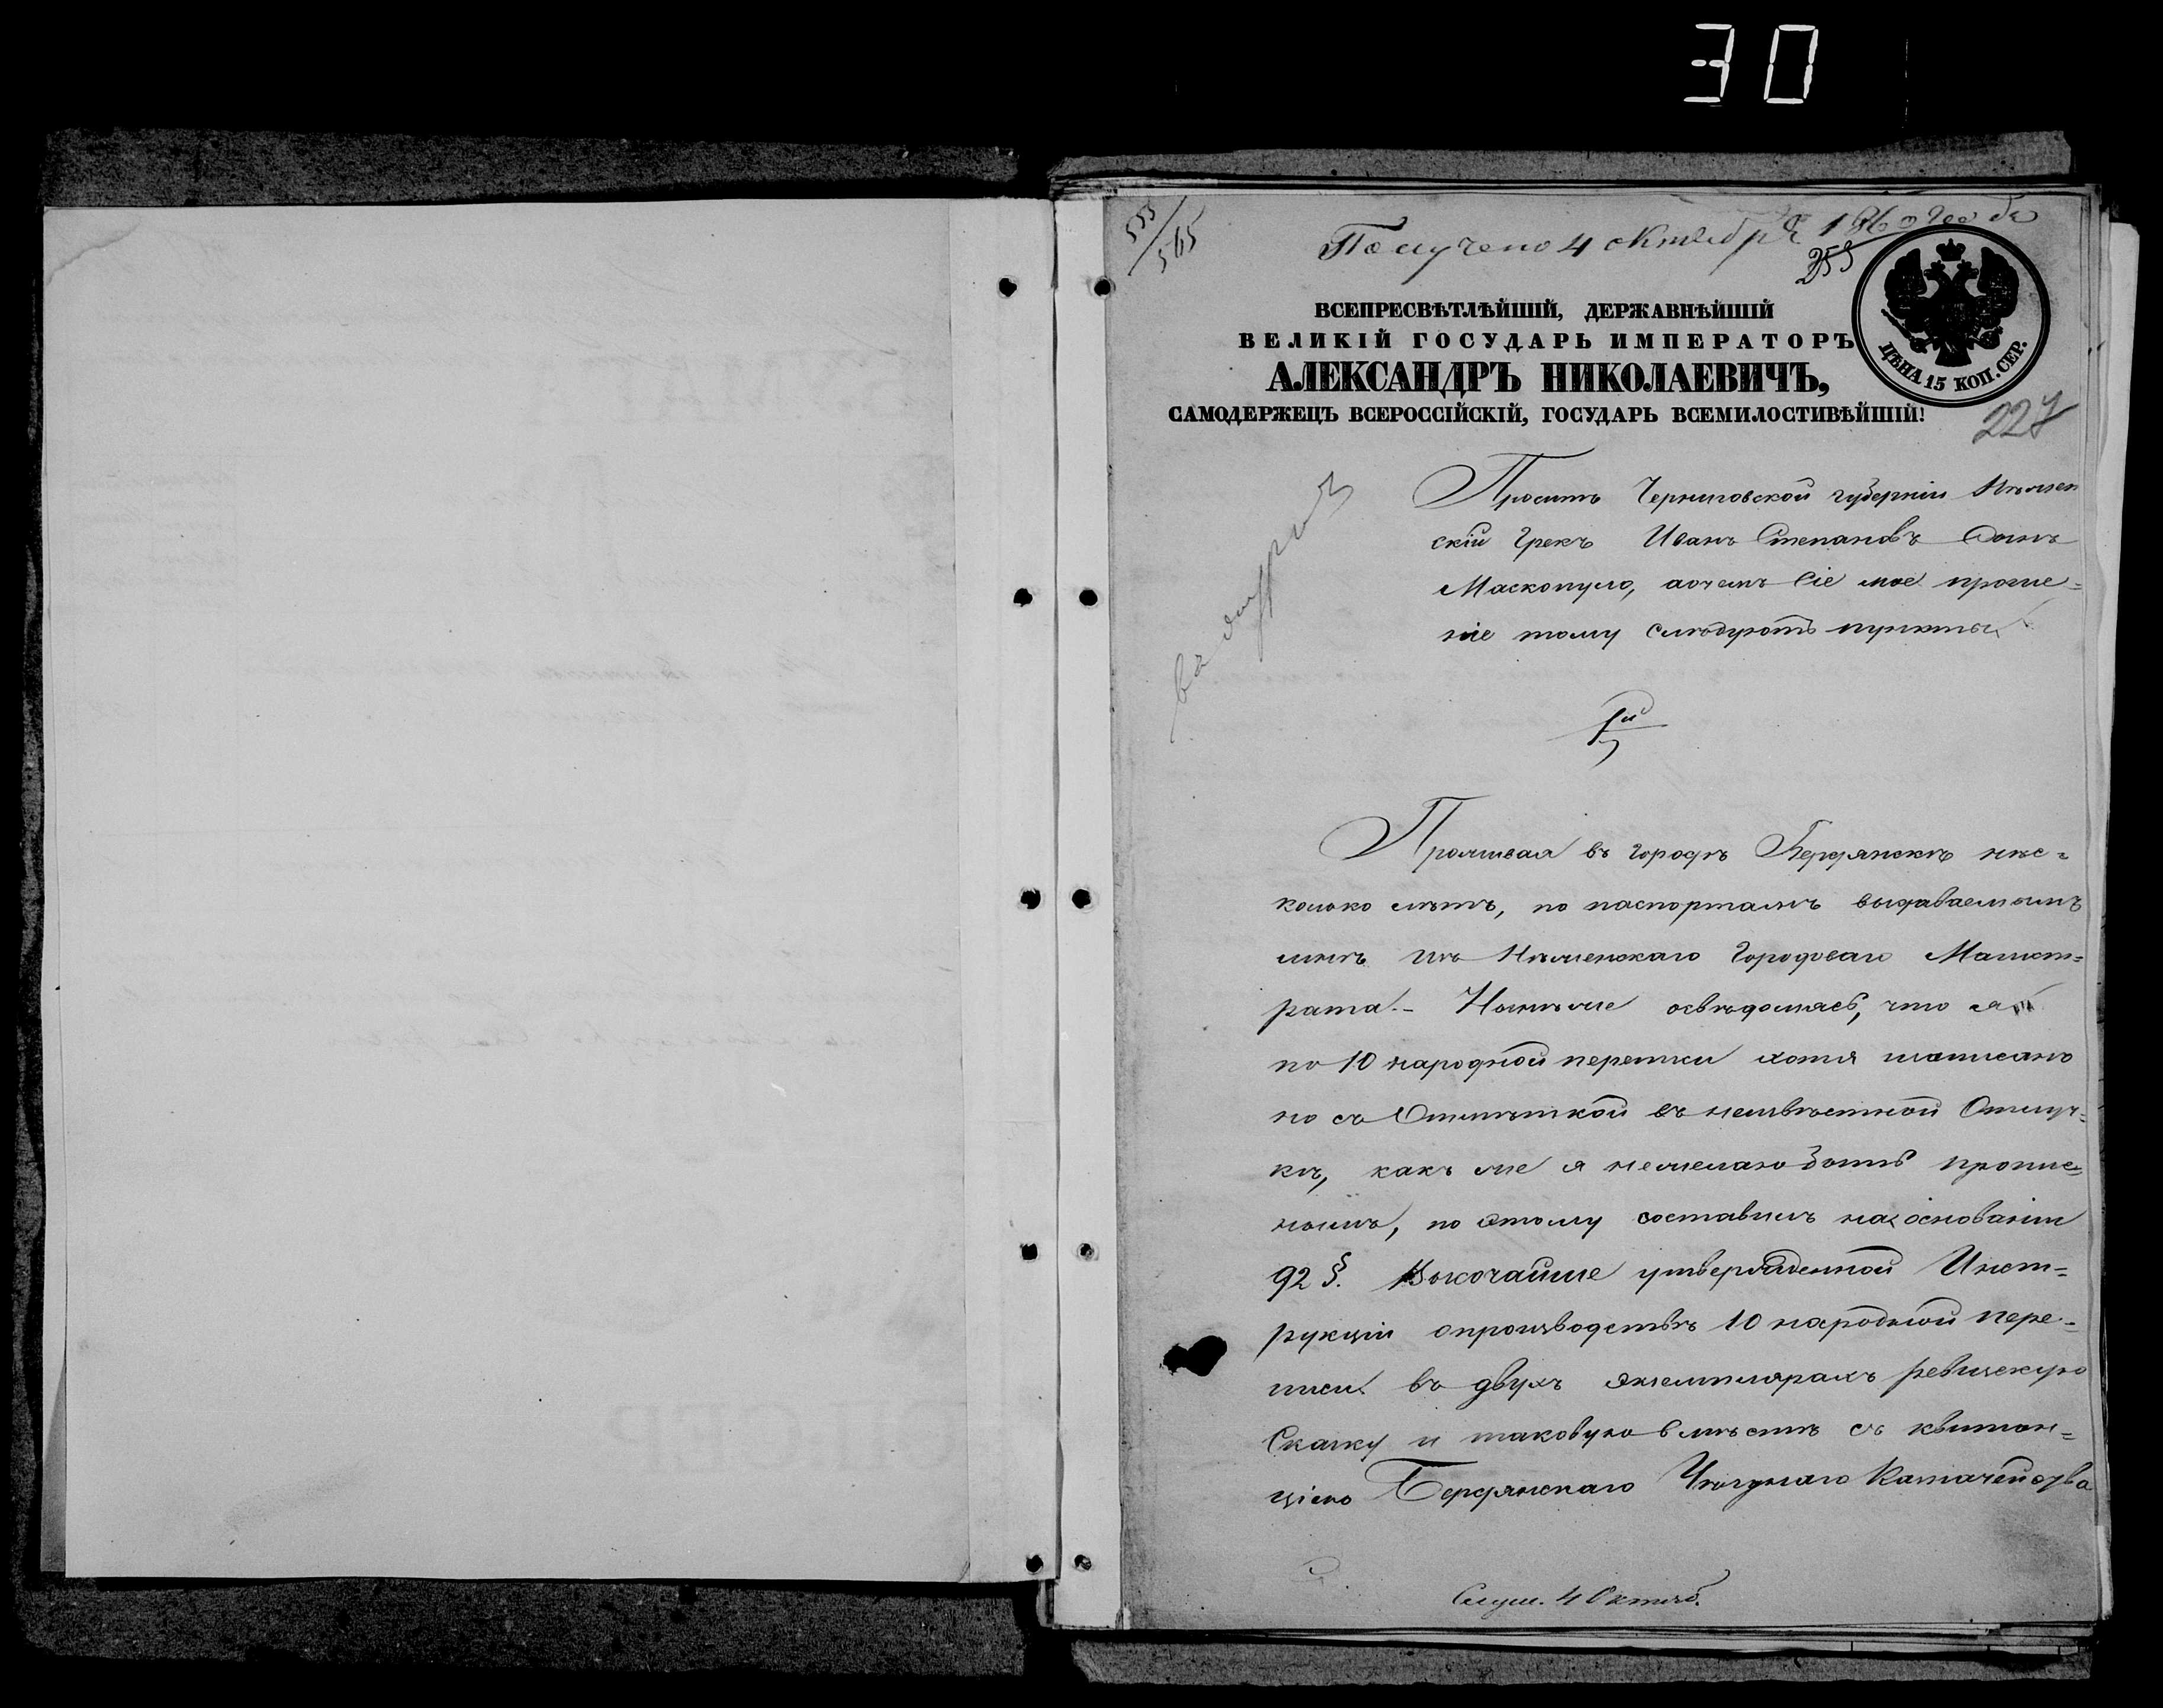 30
555/565
Получено 4 октября 1860 года
259
ВСЕПРЕСВѢТЛѢЙШІЙ, ДЕРЖАВНѢЙШІЙ
ВЕЛИКІЙ ГОСУДАРЬ ИМПЕРАТОРЪ
АЛЕКСАНДРЪ НИКОЛАЕВИЧЪ,
САМОДЕРЖЕЦЪ ВСЕРОССІЙСКІЙ, ГОСУДАРЬ ВСЕМИЛОСТИВѢЙШІЙ!
ЦѢНА 15 КОП. СЕР.
227
Проситъ Черниговской губерніи Нѣжен
скій Грекъ Иванъ Степановъ Сынъ
Маскопуло, аочемъ Сіе мое проше=
ніе тому Слѣдуютъ пункты
1й
Проживая въ городѣ Бердянскѣ нѣс=
колько лѣтъ, по паспортамъ выдаваемымъ
мнѣ изъ Нѣженскаго Городоваго Магист=
рата.- Нынѣ же освѣдомясь, что я
по 10 народной переписи хотя и записанъ
но съ Отмѣткой въ неизвѣстной Отлуч=
кѣ, какъ же я нежелаю быть
по этому составилъ на основаніи
92 §. Высочайше утвержденной Инст=
рукціи опроизводствѣ 10 народной пере=
писи въ двухъ экземплярахъ ревизскую
Сказку и таковую вмѣстѣ съ квитан=
ціею Бердянскаго Уѣзднаго Казначейства
Слуш. 4 Октяб.